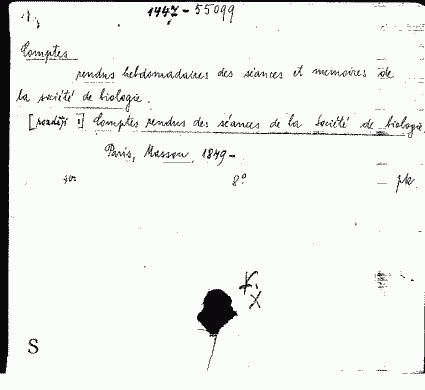 1447-55099
Comptes
rendus hebdomadaires des séances et memoires de
la société de biologie.
[později :] Comptes rendus des séances de la Société de biologie
Paris, Masson, 1849-
sv. 8° pk
X
S